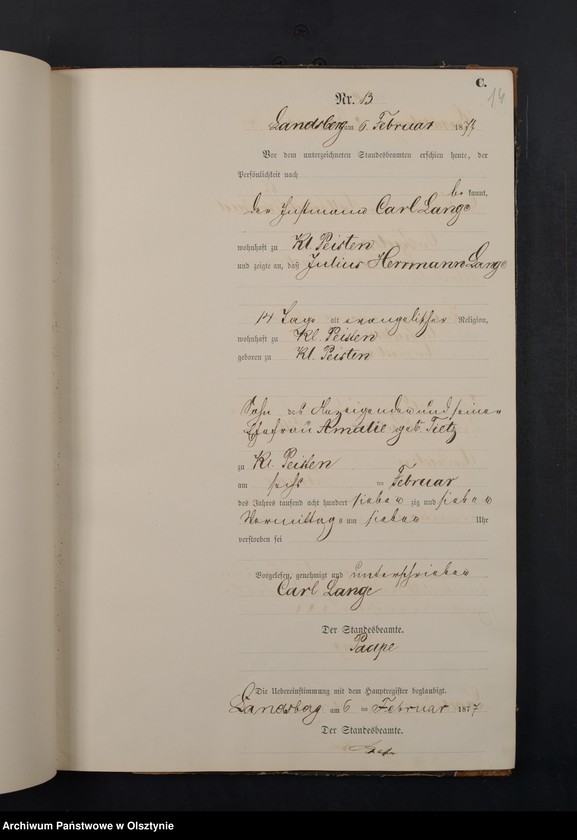 C.
14
Nr. 13
Landsberg am 6. Februar 1877
Vor dem unterzeichneten Standesbeamten erschien heute, der
Persönlichkeit nach
be kannt,
der Instmann Carl Lange
wohnhaft zu Kl. Peisten
und zeigte an, daß Julius Herrmann Lange
14 Tage alt evangelischer Religion,
wohnhaft zu Kl. Peisten
geboren zu Kl. Peisten
Sohn des Anzeigenden und seiner
Ehefrau Amalie geb. Tietz
zu Kl. Peisten
am sechs ten Februar
des Jahres tausend acht hundert sieben zig und sieben
Vormittags um sieben Uhr
verstorben sei
Vorgelesen, genehmigt und unterschrieben
Carl Lange
Der Standesbeamte.
Paape
Die Uebereinstimmung mit dem Hauptregister beglaubigt.
Landsberg am 6 ten Februar 1877
Der Standesbeamte.
Archiwum Państwowe w Olsztynie